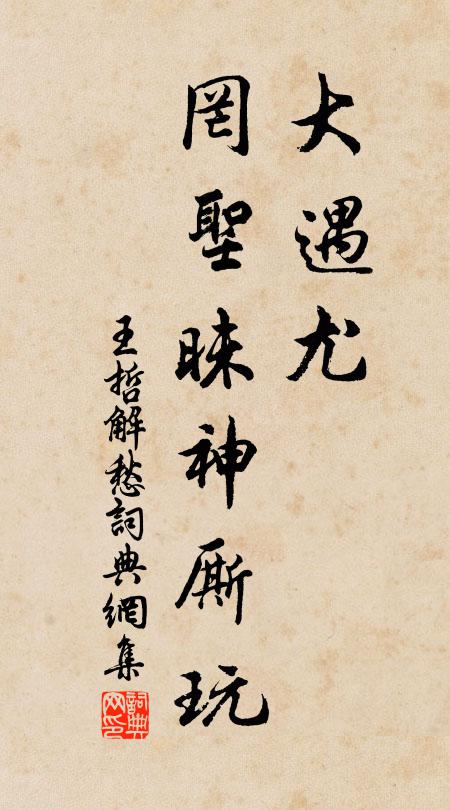 大遇尤
罔聖昧神厮玩
王哲解愁詞典網集
詞典网印